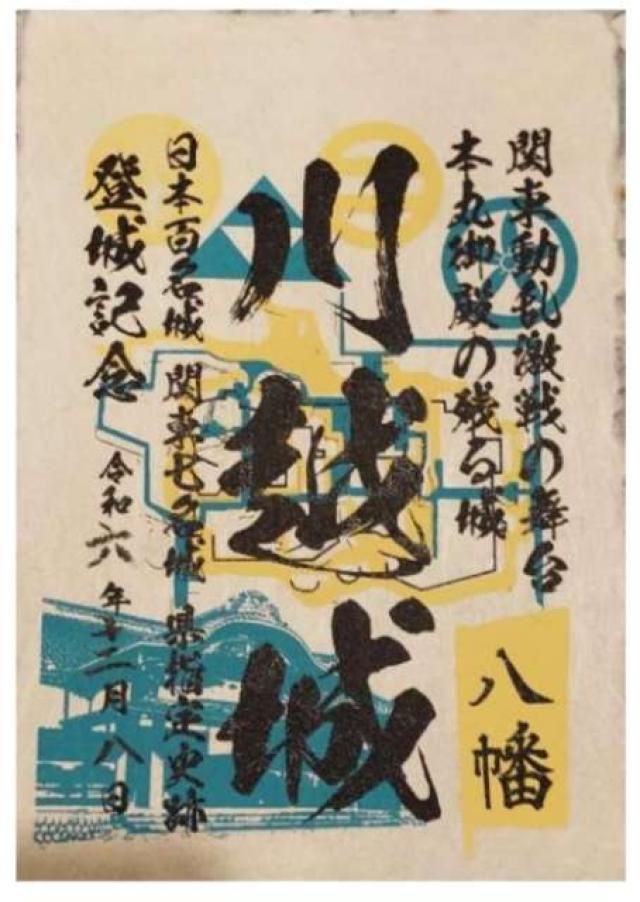 関東動乱激戦の舞台
本丸御殿の残る城
八幡
川越城
日本百名城 関東七名城 県指定史跡
登城記念
令和六年十二月八日